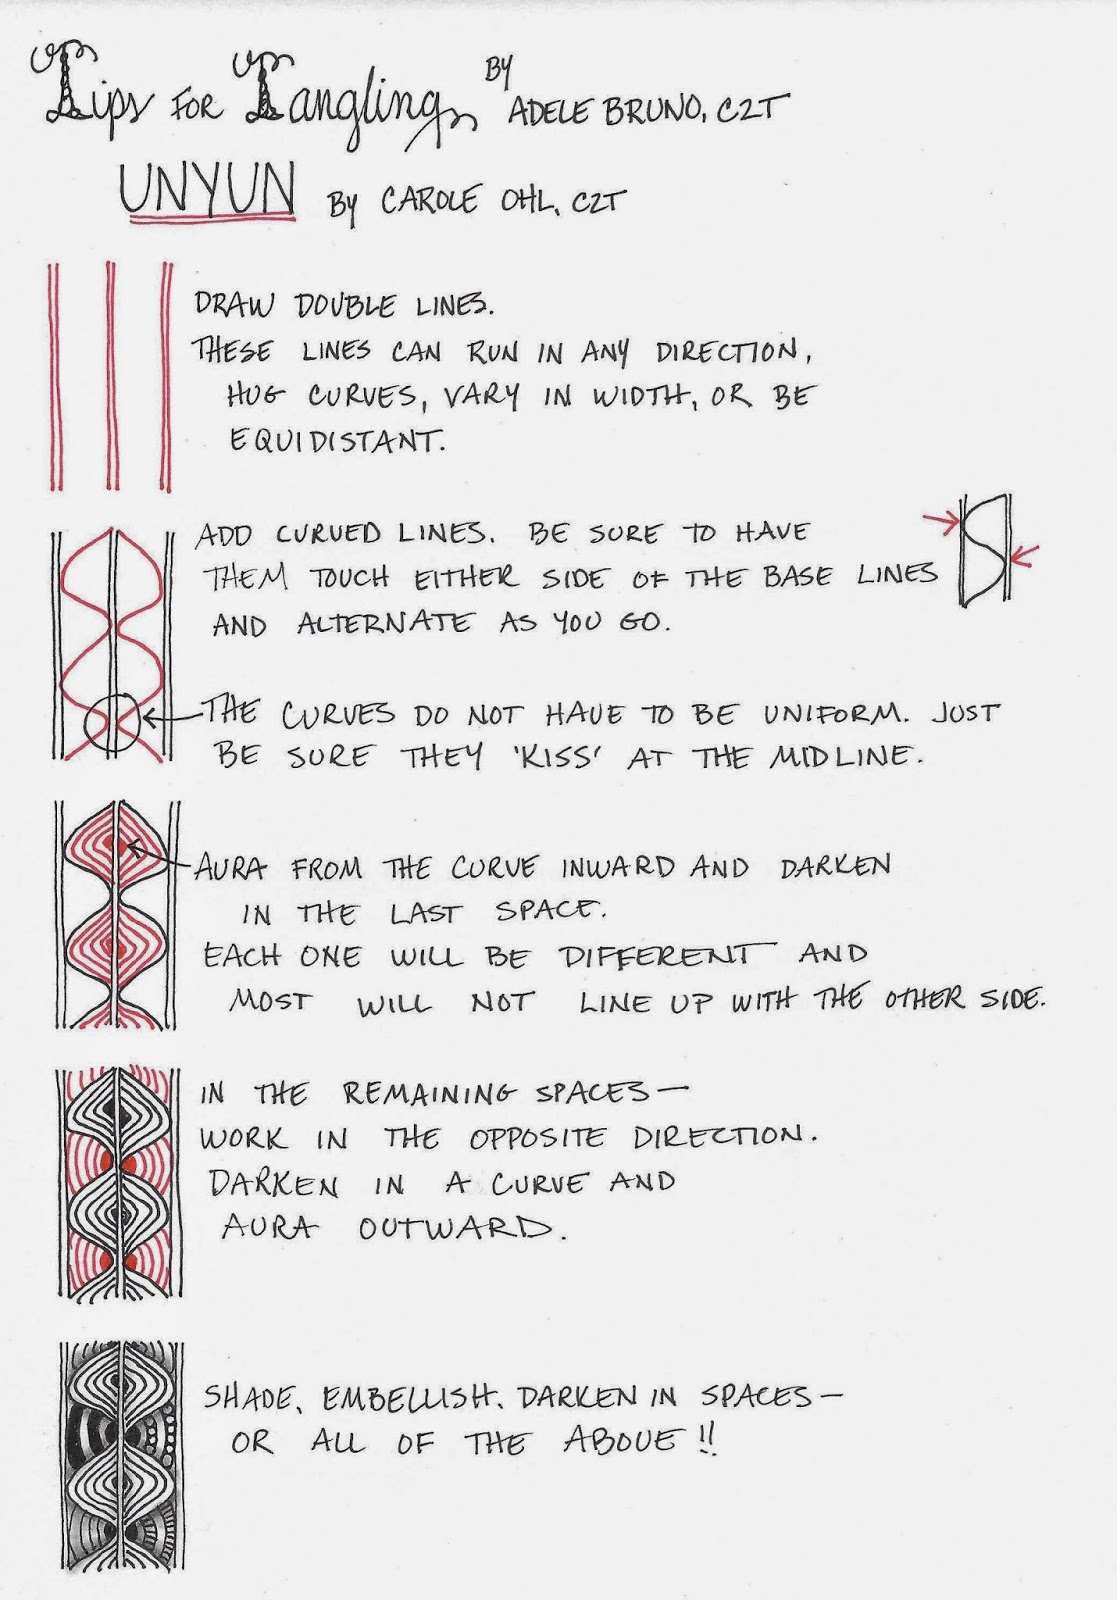 Tips FOR Tangling BY ADELE BRUNO, CZT
UNYUN BY CAROLE OHL, CZT
DRAW DOUBLE LINES.
THESE LINES CAN RUN IN ANY DIRECTION,
HUG CURVES, VARY IN WIDTH, OR BE
EQUIDISTANT.
ADD CURVED LINES. BE SURE TO HAVE
THEM TOUCH EITHER SIDE OF THE BASE LINES
AND ALTERNATE AS YOU GO.
THE CURVES DO NOT HAVE TO BE UNIFORM. JUST
BE SURE THEY 'KISS' AT THE MIDLINE.
AURA FROM THE CURVE INWARD AND DARKEN
IN THE LAST SPACE.
EACH ONE WILL BE DIFFERENT AND
MOST WILL NOT LINE UP WITH THE OTHER SIDE.
IN THE REMAINING SPACES—
WORK IN THE OPPOSITE DIRECTION.
DARKEN IN A CURVE AND
AURA OUTWARD.
SHADE, EMBELLISH, DARKEN IN SPACES—
OR ALL OF THE ABOVE!!